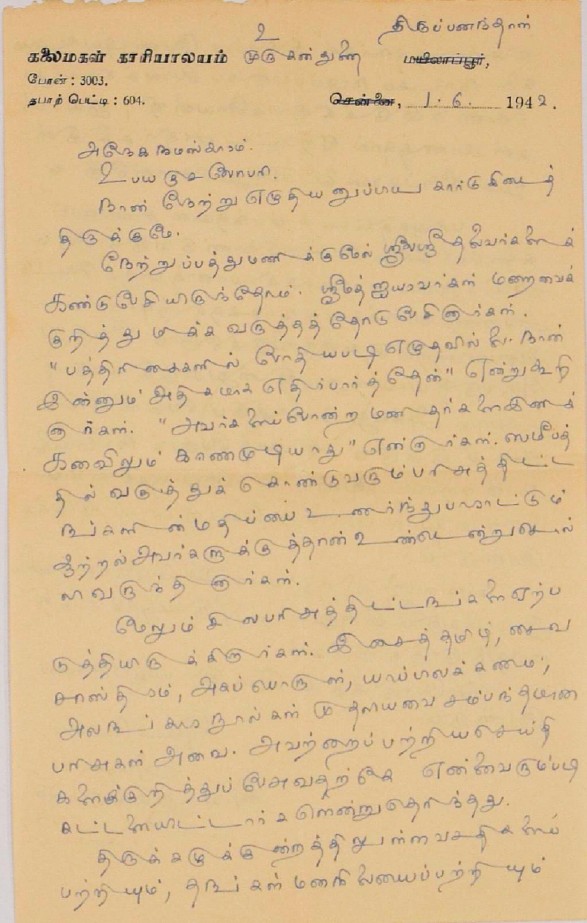 உ
திருப்பனந்தாள்
கலைமகள் காரியாலயம் முருகன்துணை மயிலாப்பூர்,
போன் : 3003.
தபாற் பெட்டி : 604. சென்னை, 1. 6. 1942.
அநேக நமஸ்காரம்.
உபய குசலோபரி.
நான் நேற்று எழுதியனுப்பிய கார்டு கிடைத்
திருக்குமே.
நேற்றுப்பத்துமணிக்குமேல் ஸ்ரீலஸ்ரீ தலைவர்களைக்
கண்டுபேசியிருந்தோம். ஸ்ரீமத் ஐயரவர்கள் மறைவைக்
குறித்து மிக்க வருத்தத்தோடு பேசினார்கள்.
"பத்திரிகைகளில் போதியபடி எழுதவில்லை. நான்
இன்னும் அதிகமாக எதிர்பார்த்தேன்" என்று கூறி
னார்கள். "அவர்களைப்போன்ற மனிதர்களை இனிக்
கனவிலும் காணமுடியாது" என்றார்கள். ஸமீபத்
தில் வகுத்துக் கொண்டுவரும் பரிசுத் திட்ட
ங்களின் மதிப்பை உணர்ந்து பாராட்டும்
ஆற்றல் அவர்களுக்குத்தான் உண்டென்று சொல்
லி வருந்தினார்கள்.
மேலும் சில பரிசுத்திட்டங்களை ஏற்ப
டுத்தியிருக்கிறார்கள். இசைத்தமிழ், சைவ
சாஸ்திரம், அகப்பொருள், யாப்பிலக்கணம்,
அலங்கார நூல்கள் முதலியவை சம்பந்தமான
பரிசுகள் அவை. அவற்றைப் பற்றிய செய்தி
களைக்குறித்துப் பேசுவதற்கே என்னை வரும்படி
கட்டளையிட்டார்களென்று தெரிந்தது.
திருக்கழுக்குன்றத்திலுள்ள வசதிகளைப்
பற்றியும், தங்கள் மனநிலையைப்பற்றியும்